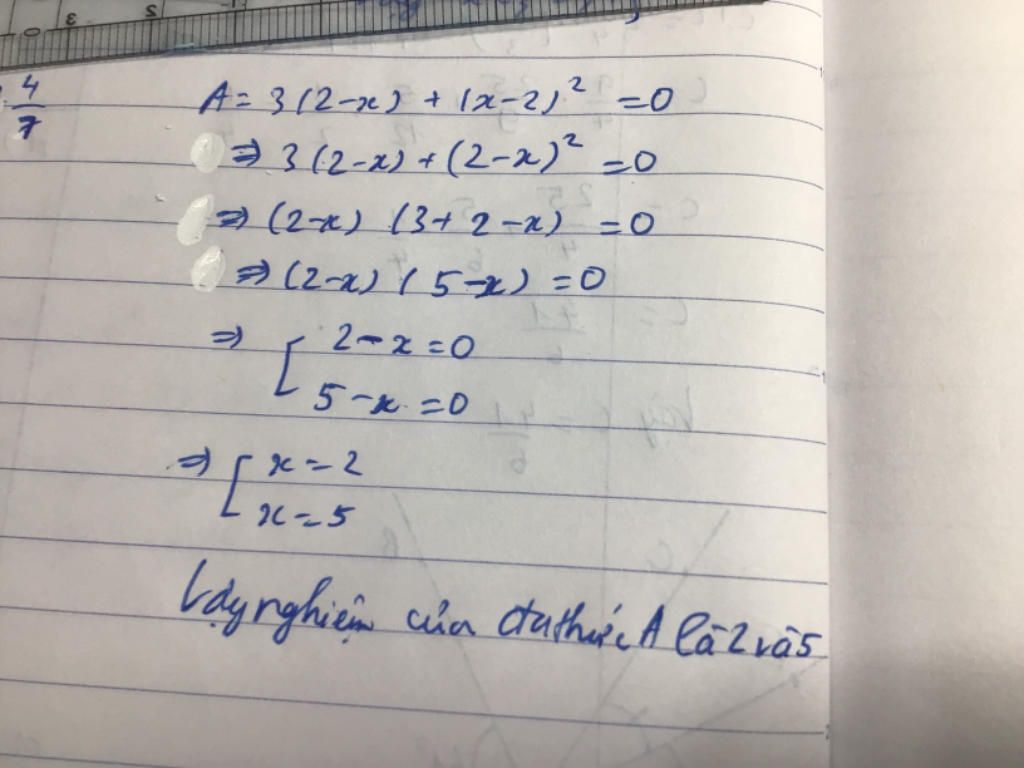 4/7
A = 3(2-x) + (x-2)² = 0
⇒ 3(2-x) + (2-x)² = 0
⇒ (2-x) (3+2-x) = 0
⇒ (2-x) (5-x) = 0
⇒ [ 2-x = 0
5-x = 0
⇒ [ x = 2
x = 5
Vậy nghiệm của đa thức A là 2 và 5